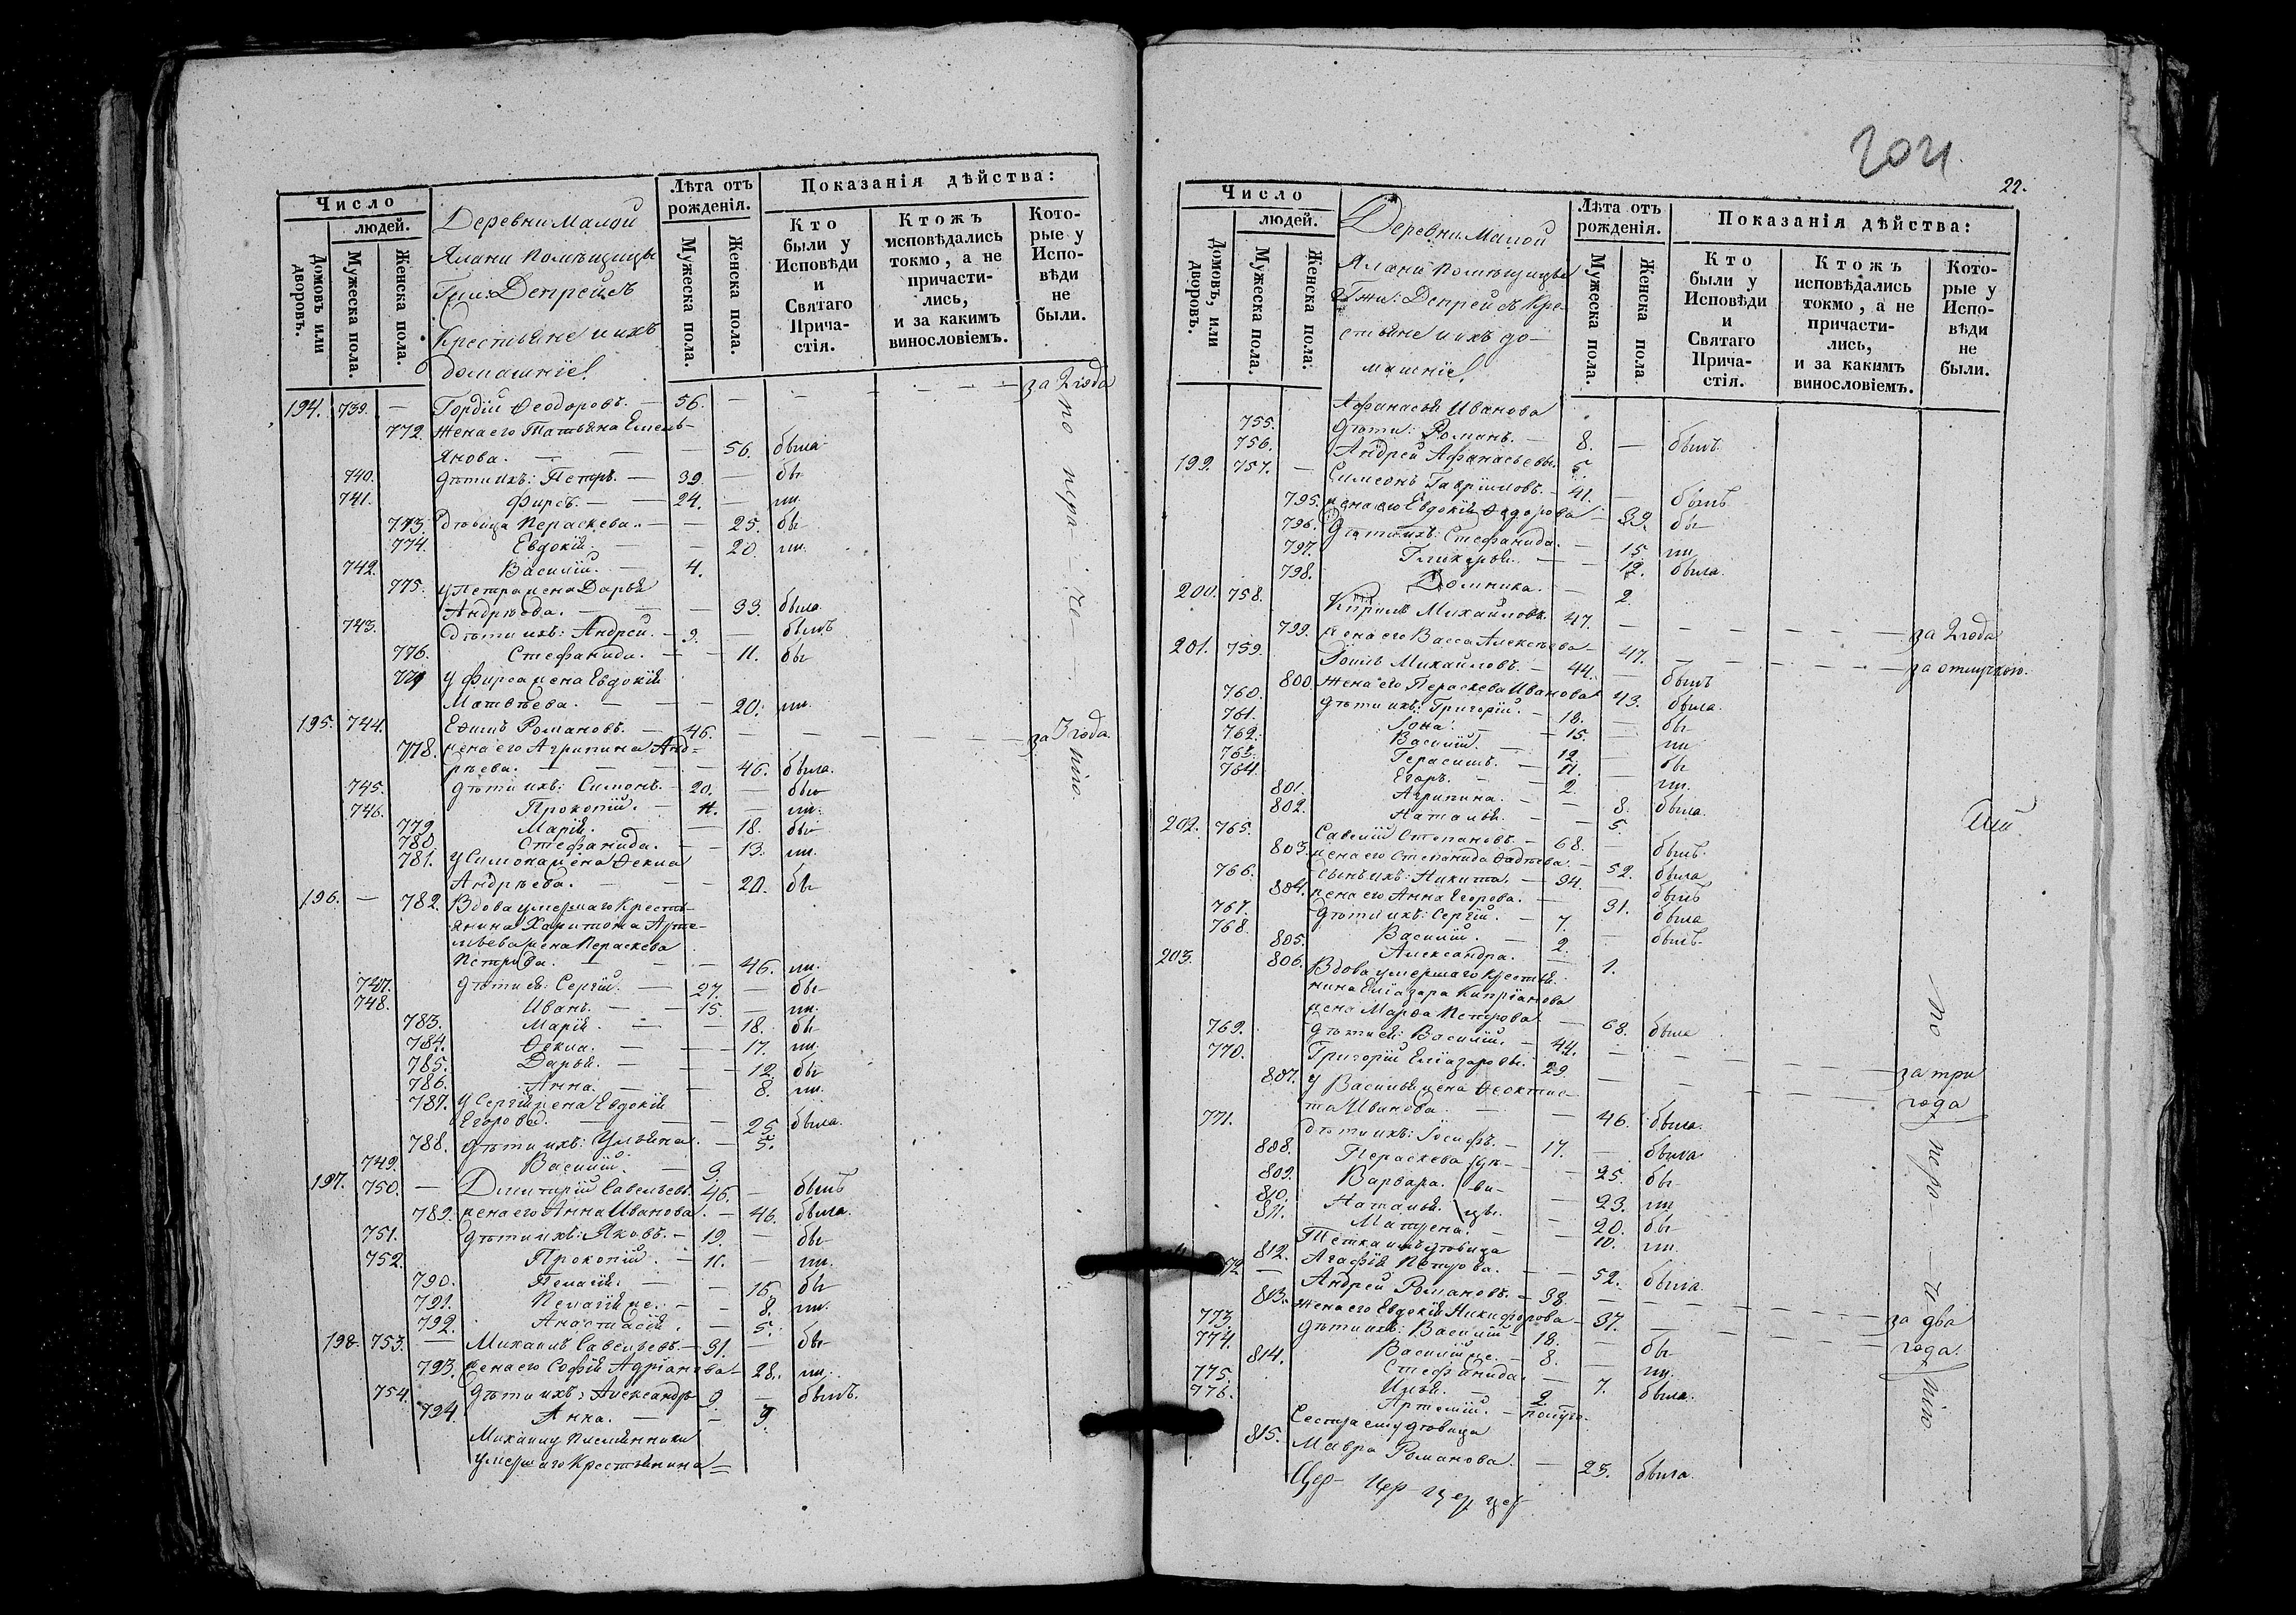 Число
людей.
Домовъ или дворовъ.
Мужеска пола.
Женска пола.
Деревни Малой
Ялани помѣщицы
Гжи: Депрейсъ
Крестьяне и ихъ
домашніе.
Лѣта отъ рожденія.
Мужеска пола.
Женска пола.
Показанія дѣйства:
Кто были у Исповѣди и Святаго Причастія.
Ктожъ исповѣдались токмо, а не причастились, и за какимъ винословіемъ.
Которые у Исповѣди не были.
194. 739. — Гордій Ѳеодоровъ. — 56. — — — — — за 2 года
772. Жена его Татьяна Емель-
янова. — — — 56. была
740. Дѣти ихъ: Петръ. — 39. — бы
741. Фирсъ. — 24. — ли.
773. Дѣвица Пераскева. — — 25. бы
774. Евдокія. — — 20. ли.
742. Василій. — 4.
775. У Петра жена Дарья
Андрѣева. — — — 33. была
743. Дѣти ихъ: Андрей. — 9. — былъ
776. Стефанида. — — 11. бы
777 У Фирса жена Евдокія
Матвѣева. — — — 20. ли.
195. 744. Ефимъ Романовъ. — 46. — — — — — за 3 года
778. жена его Агрипина Анд-
рѣева. — — — 46. была.
745. Дѣти ихъ: Симонъ. — 20. — бы
746. Прокопій. — 11. — ли.
779. Марія. — — 18. бы
780. Стефанида. — — 13. ли.
781. У Симона жена Ѳекла
Андрѣева. — — — 20. бы
196. — 782. Вдова умершаго Кресть-
янина Харитона Арте-
мьева жена Пераскева
Петрова. — — — 46. ли.
747. Дѣти ея: Сергій. — 27. — бы
748. Иванъ. — 15. — ли.
783. Марія. — — 18. бы
784. Ѳекла. — — 17. ли.
785. Дарья. — — 12. бы
786. Анна. — — 8. ли.
787. У Сергія жена Евдокія
Егорова. — — 25. была.
788. Дѣти ихъ: Ульяна. — 5.
749. Василій. — 9.
197. 750. — Димитрій Савельевъ. 46. — былъ
789. жена его Анна Иванова. — 46. была.
751. Дѣти ихъ: Яковъ. — 19. — бы
752. Прокопій. — 11. — ли.
790. Пелагія. — — 16. бы
791. Пелагія же. — — 8. ли.
792. Анастасія. — 5.
198. 753. — Михаилъ Савельевъ. — 31. — бы
793. жена его Софія Адріанова — 28. ли.
754. Дѣти ихъ: Александръ 9. — былъ.
794. Анна. — — 3.
Михаилу племянники
умершаго Крестьянина =
по неро-че-нію.
204
22.
Число
людей.
Домовъ, или дворовъ.
Мужеска пола.
Женска пола.
Деревни Малой
Ялани помѣщицы
Гжи: Депрейсъ Кре-
стьяне и ихъ до-
машніе.
Лѣта отъ рожденія.
Мужеска пола.
Женска пола.
Показанія дѣйства:
Кто были у Исповѣди и Святаго Причастія.
Ктожъ исповѣдались токмо, а не причастились, и за какимъ винословіемъ.
Которые у Исповѣди не были.
Афанасья Иванова
755. Дѣти: Романъ. — 8. — былъ.
756. Андрей Афанасьевы. 5.
199. 757. — Симеонъ Гавриловъ. — 41. — былъ
795. жена его Евдокія Ѳедорова — 39. бы
796. Дѣти ихъ: Стефанида. — 15. ли
797. Гликерья. — — 12. была.
798. Домника. — 2.
200. 758. Кирилъ Михайловъ. 47. — — — — — за 2 года
799. жена его Васса Алексѣева — 47. — — — — за отлучкою.
201. 759. Зоилъ Михайловъ. — 44. — былъ
800. жена его Пераскева Иванова 43. была.
760. Дѣти ихъ: Григорій. — 18. — бы
761. Іона. — 15. — ли
762. Василій. — 12. — бы
763. Герасимъ. — 11. — ли.
764. Егоръ. — 2.
801. Агрипина. — — 8. была.
802. Наталья. — 5.
202. 765. Савелій Степановъ. — 68. — былъ.
803. жена его Степанида Фадѣева — 52. была
766. Сынъ ихъ: Никита. — 34. — былъ
804. жена его Анна Егорова. — 31. была
767. Дѣти ихъ: Сергій. — 7. — былъ.
768. Василій. — 2.
805. Александра. — 1.
203. 806. Вдова умершаго Крестья-
нина Еліазара Кипріанова
жена Марѳа Петрова. — 68. была
769. Дѣти ея: Василій. — 44. — — — за три
770. Григорій Еліазаровы. 29. — — — года
807. У Василья жена Ѳеоктис-
та Иванова. — — 46. была.
771. Дѣти ихъ: Іосифъ. — 17. — былъ.
808. Пераскева (дѣ- — 25. бы
809. Варвара. (ви- — 23. ли
810. Наталья. (цы. — 20. бы
811. Матрена. — — 10. ли.
Тетка имъ дѣвица
812. Агафія Петрова. — — 52. была.
72 — Андрей Романовъ. — 38. — — — — за два
813. жена его Евдокія Никифорова — 37. — — — года.
773. Дѣти ихъ: Василій — 18. — бы
774. Василій же. — 8. — ли.
814. Стефанида. — 7. была.
775. Илья. — 2.
776. Артемій. — полуго-
Сестра ему дѣвица
815. Мавра Романова. — 25. была.
по неро-че-нію
Цер- цер- цер цер